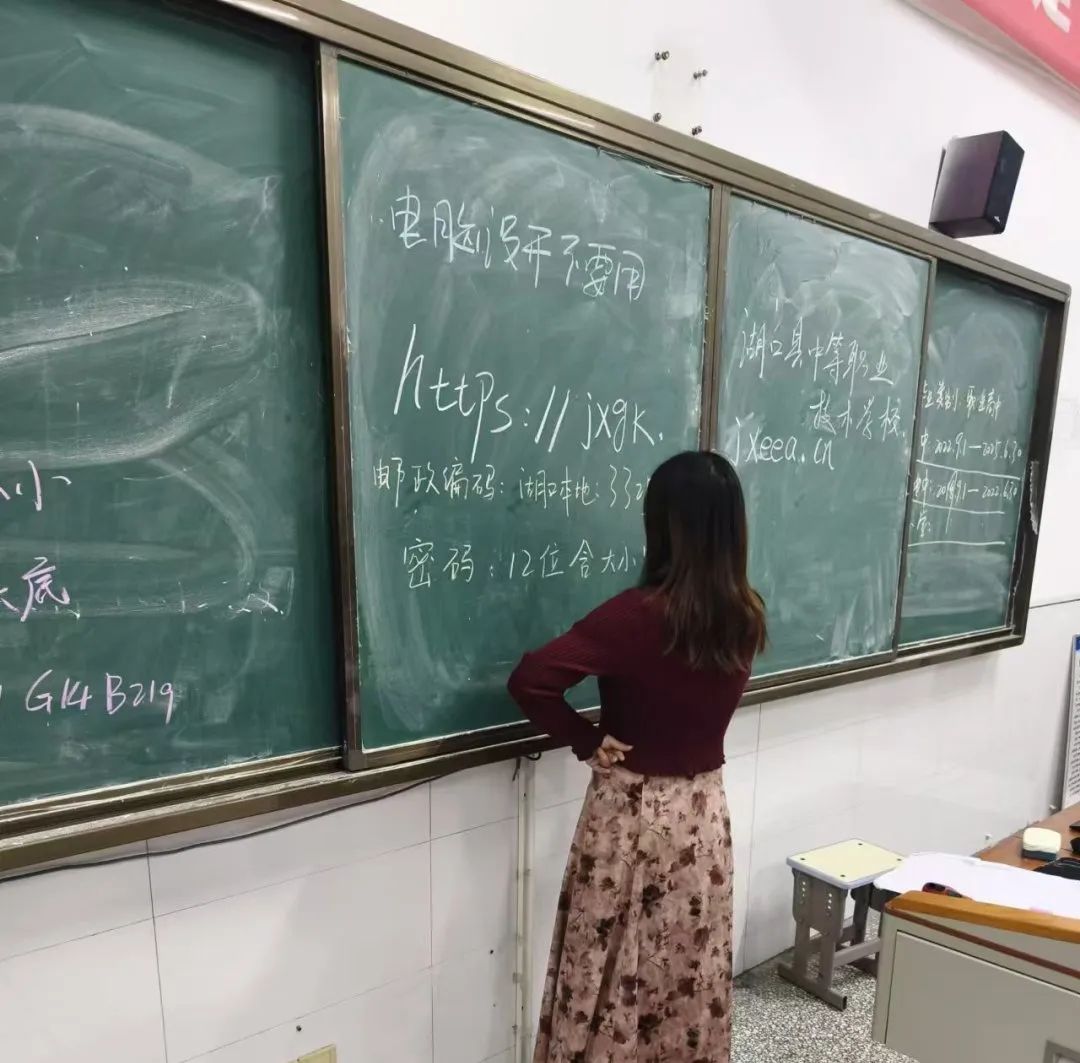 小
底
G14 B219
电脑没开不要用
https://jxgk.
邮政编码：湖口本地：332
密码：12位含大小
湖口县中等职业
技术学校
jxeea.cn
职业高中
2022.9.1—2025.6.30
9.1—2022.6.30